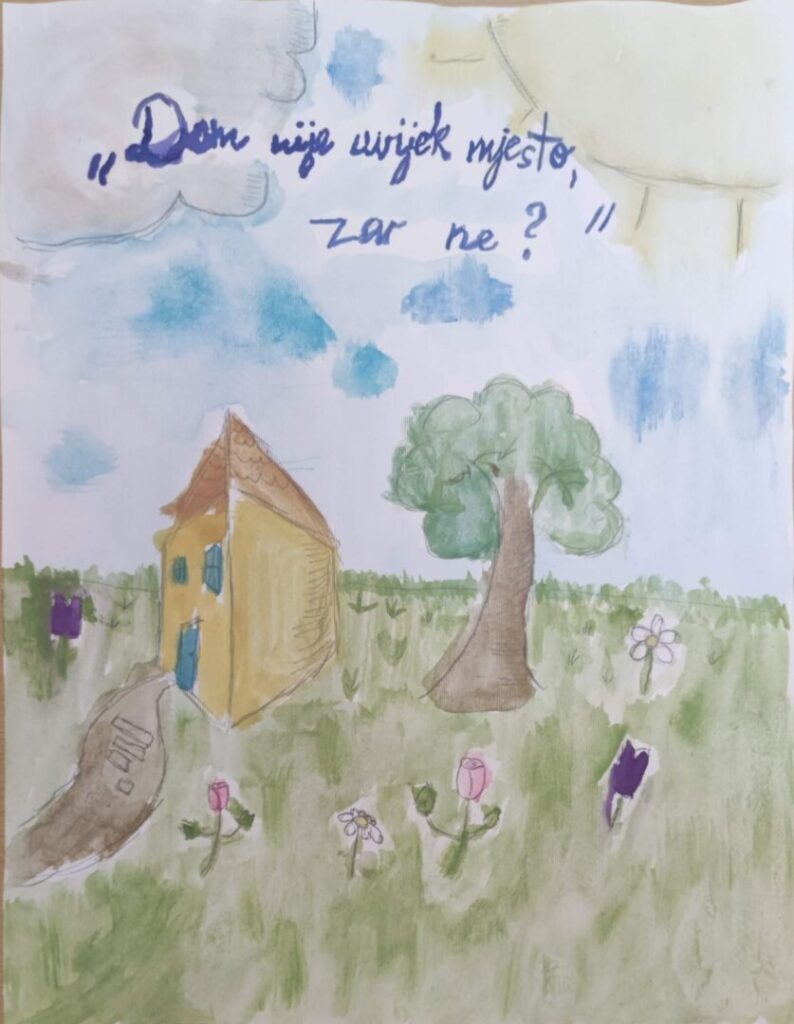 „Dom nije uvijek mjesto,
zar ne?"